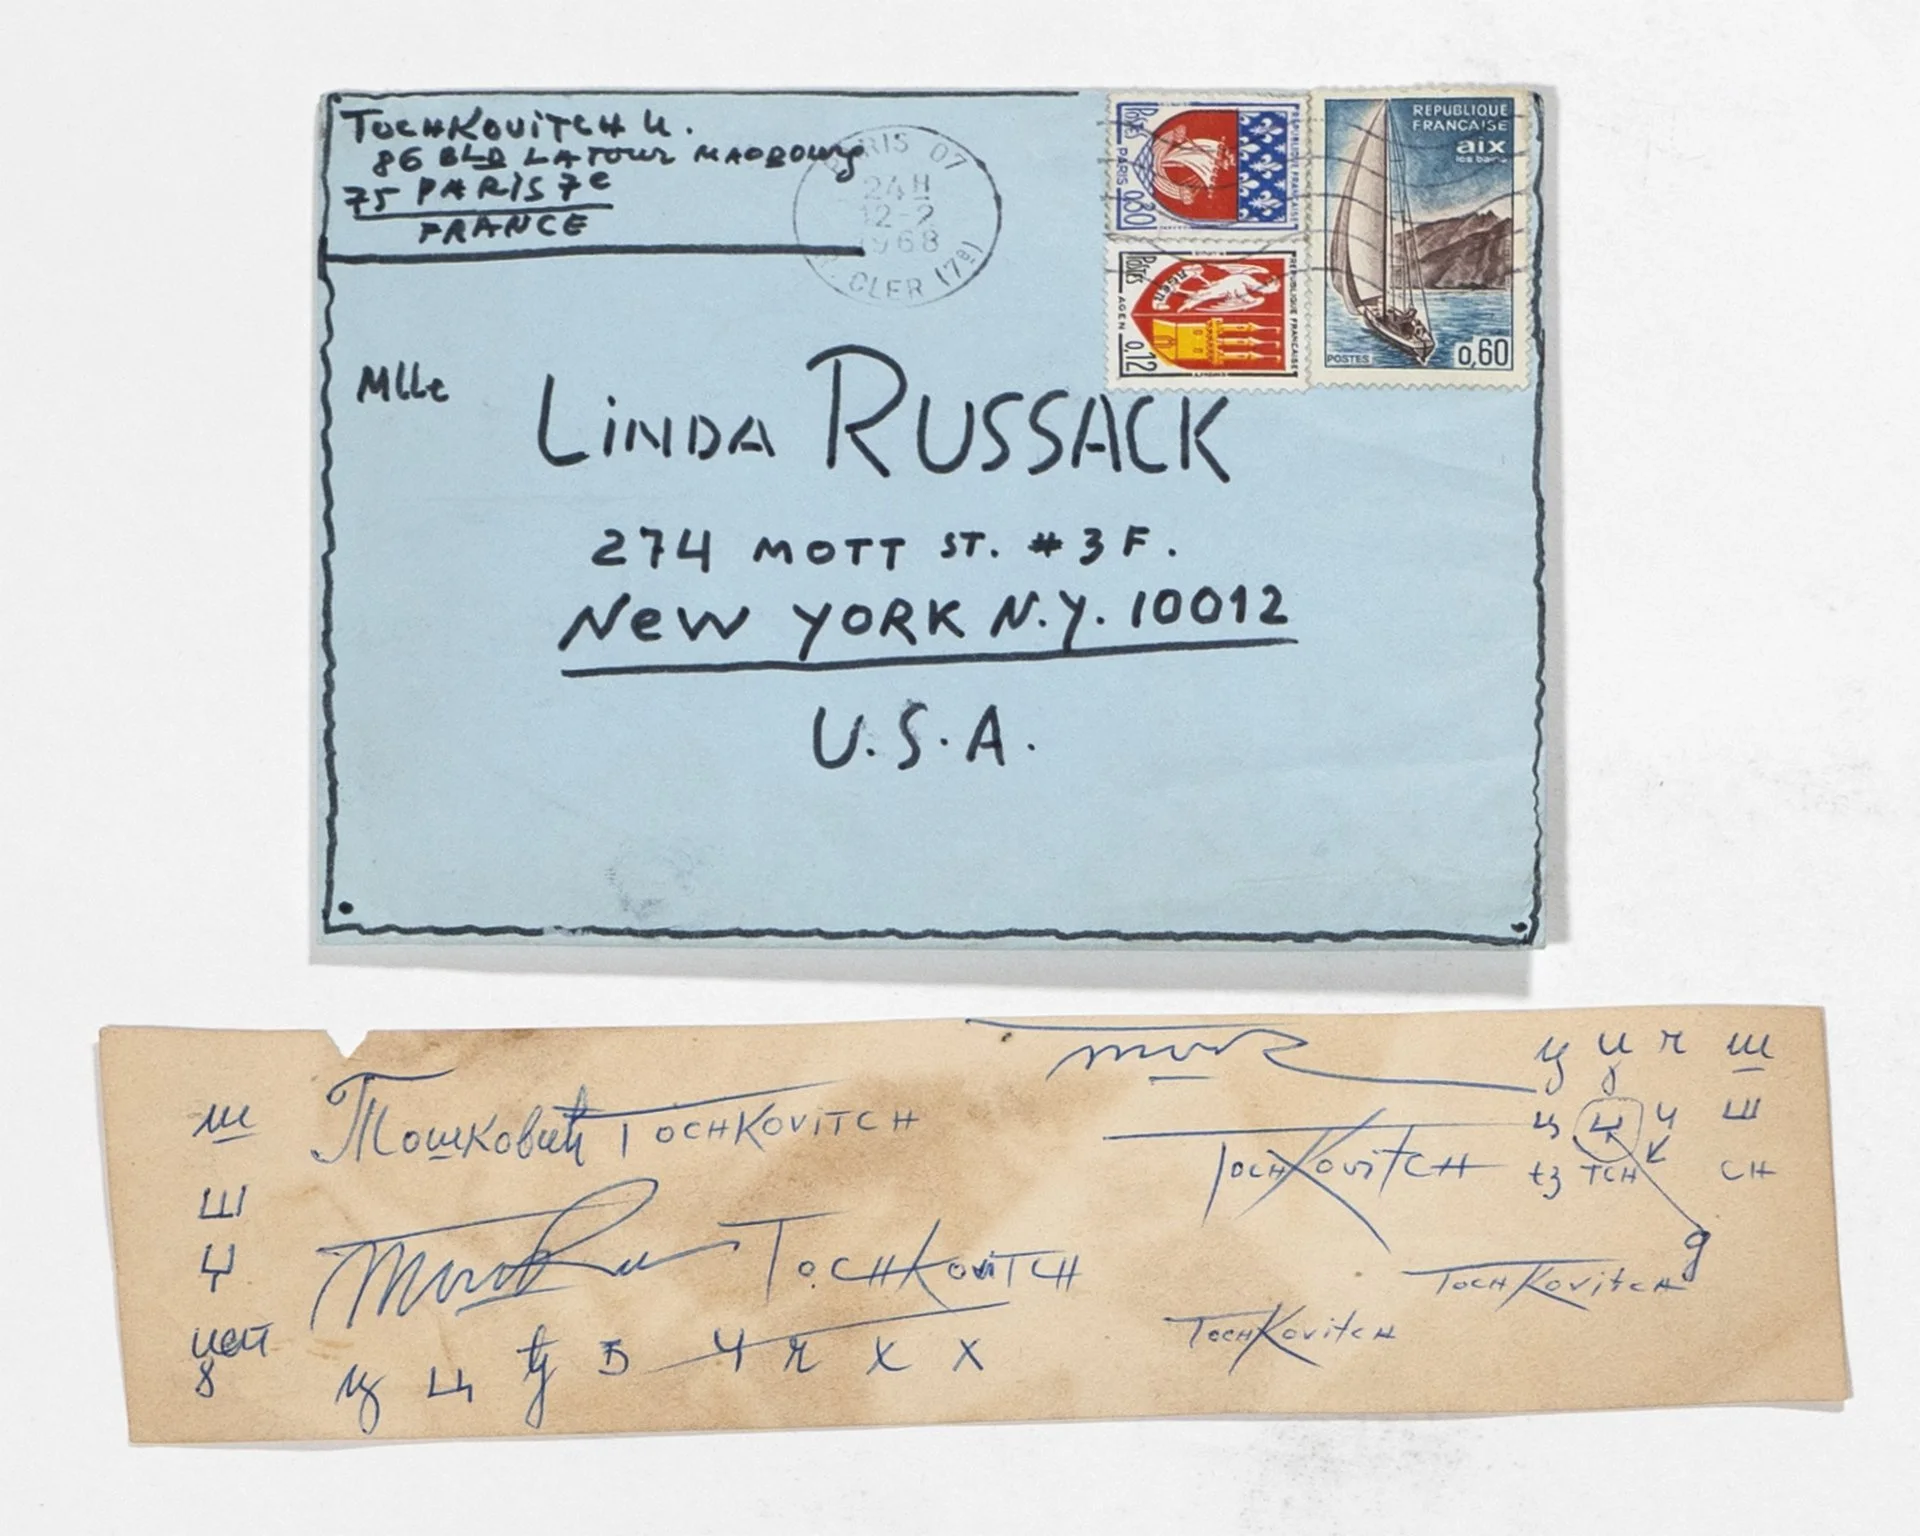 TOCHKOVITCH U.
86 BLD LATOUR MAOBOURG
75 PARIS 7e
FRANCE
PARIS 07
24H
12-2
1968
CLER (7e)
POSTES PARIS 0,30 REPUBLIQUE FRANCAISE
POSTES AGEN 0,12 REPUBLIQUE FRANCAISE
AGEN
REPUBLIQUE
FRANÇAISE
aix
les bains
POSTES 0,60
Mlle LiNDA RUSSACK
274 MOTT ST. #3F.
New YORK N.Y. 10012
U.S.A.
ш Тошковић TOCHKOVITCH
Ш
TOCHKOVITCH
ц Ц ђ Ђ Ч х X
ц ч ш
Ц Џ Ч Ш
TocHKovitCH tz TCH CH
TocHKovitcH
TocHKovitcH